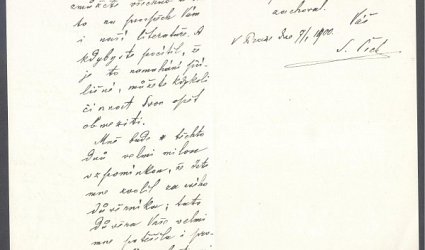 to na prospěch Vám
i naší literatuře. A
kdybyste pocítil, že
je to namáhání pří-
lišné, můžete kdykoli
činnost Svou opět
obmeziti.
Mně bude v těchto
dnů velmi milou
vzpomínkou, že jste
mne zvolil za svého
důvěrníka; tato
důvěra Vaše velmi
mne potěšila i pro-
Váš
V Praze dne 7/1 1900.
S. Čech